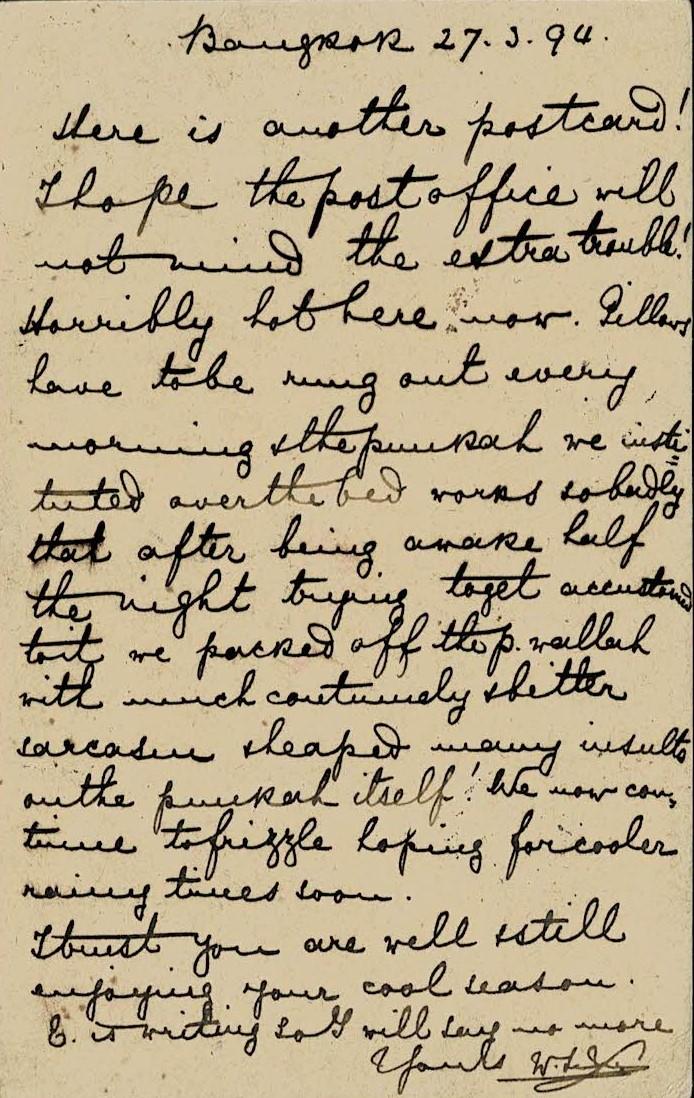 Bangkok 27.3.94.
Here is another postcard!
I hope the post office will
not mind the extra trouble!
Horribly hot here now. Pillows
have to be rung out every
morning & the punkah we insti=
tuted over the bed works so badly
that after being awake half
the night trying to get accustomed
to it we packed off the p. wallah
with much contumely & bitter
sarcasm & heaped many insults
on the punkah itself! We now con=
tinue to frizzle hoping for cooler
rainy times soon.
I trust you are well & still
enjoying your cool season.
E. is writing so I will say no more
Yours